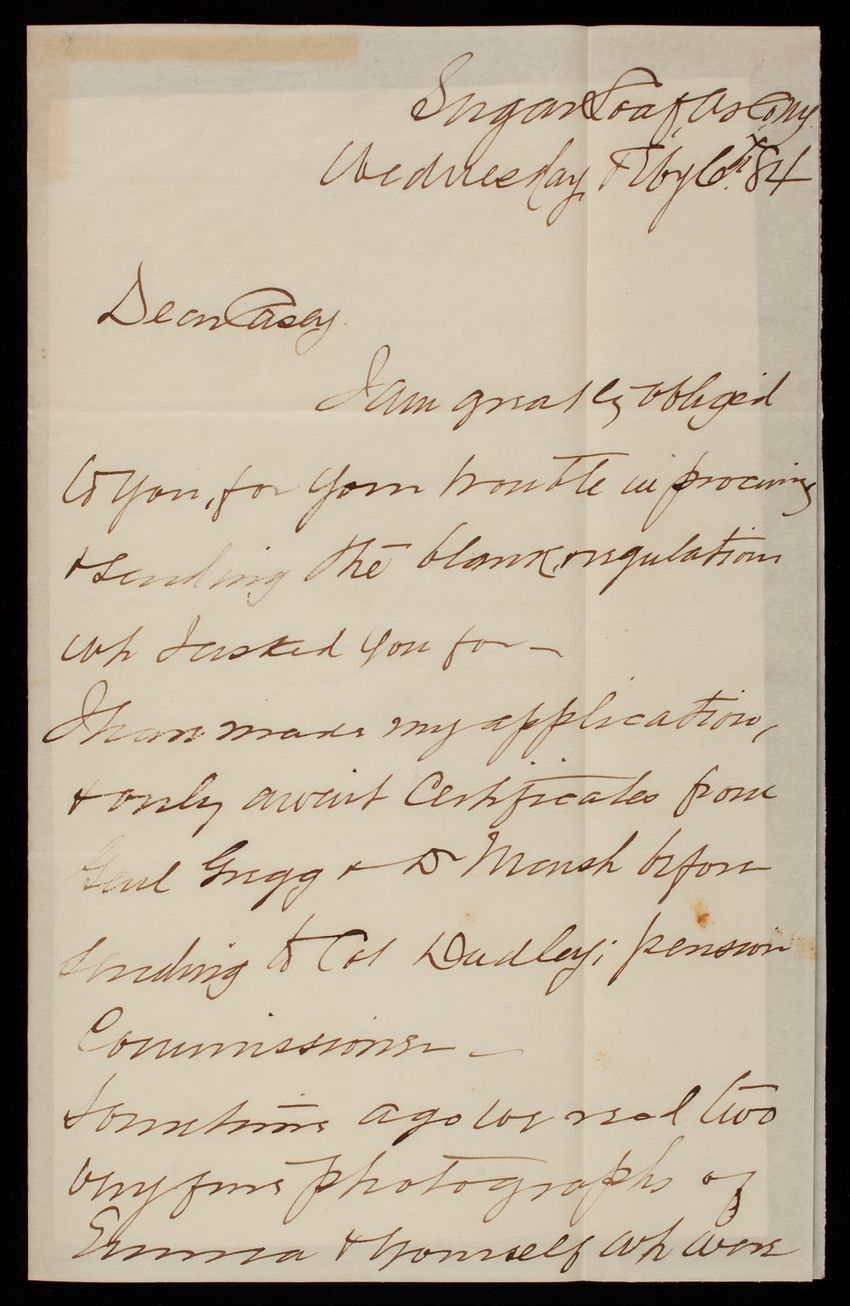 Sugar Loaf, Or. Co. Ny.
Wednesday, Feby 6th 84
Dear Casey
I am greatly obliged
to you, for your trouble in procuring
& sending the blank, regulations
wh I asked you for —
I have made my application,
& only await Certificates from
Genl Gregg & Dr Marsh before
sending to Col Dudley; pension
Commissioner —
Sometime ago we recd two
very fine photographs of
Emma & yourself wh were